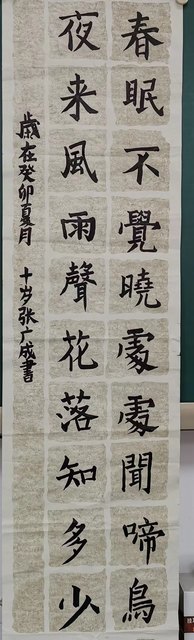 春眠不覺曉處處聞啼鳥
夜来風雨聲花落知多少
歲在癸卯夏月 十岁张广成書